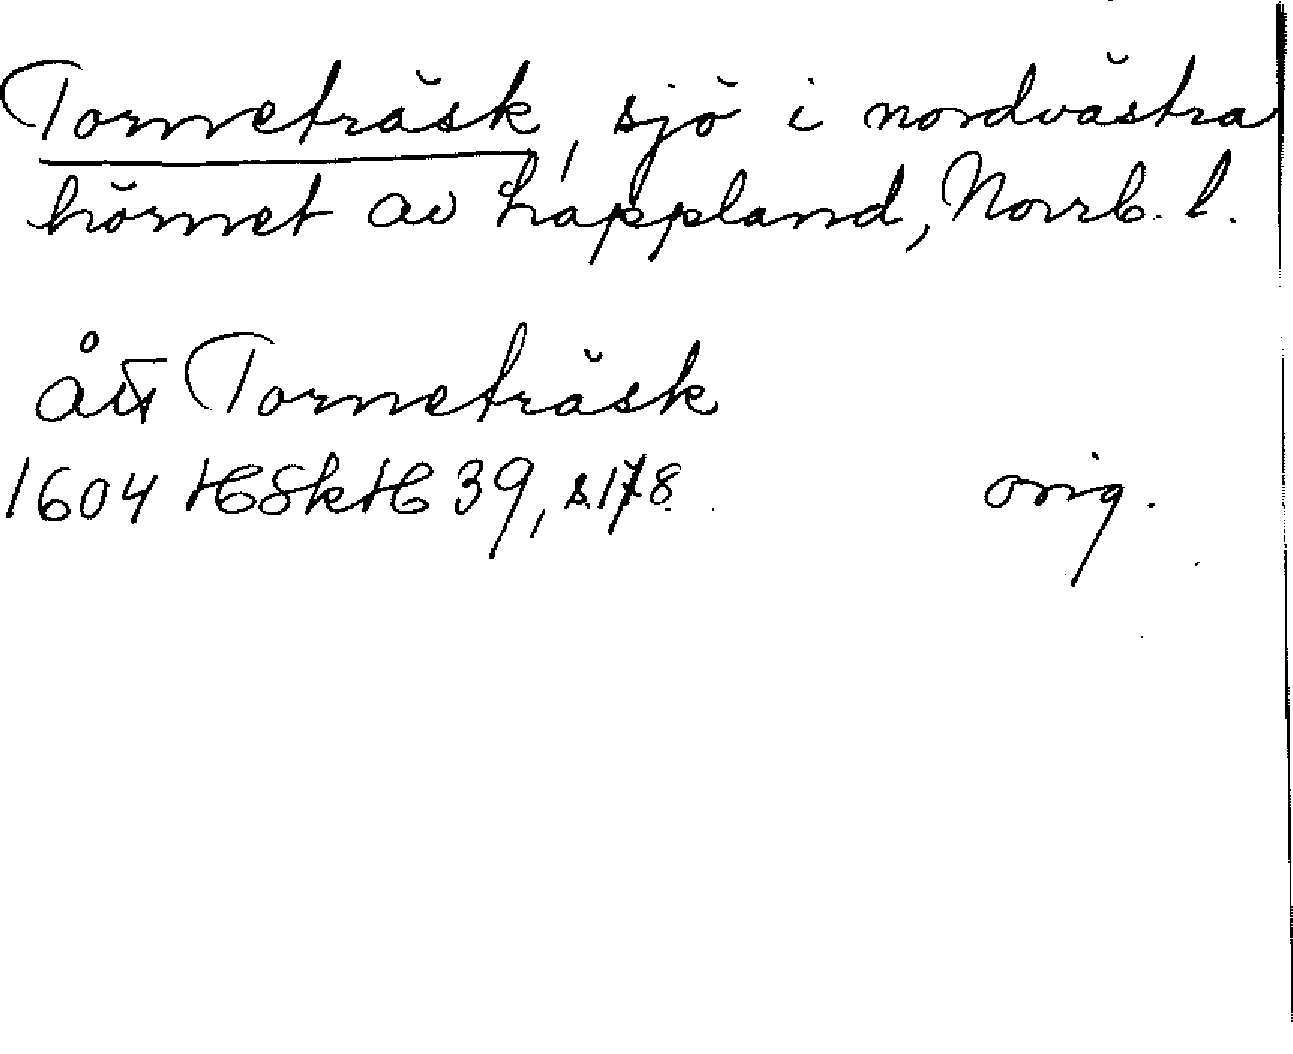 Torneträsk, sjö i nordvästra
hörnet av Lappland, Norrb. l.
ått Torneträsk
1604 HSkH 39, s. 178. orig.